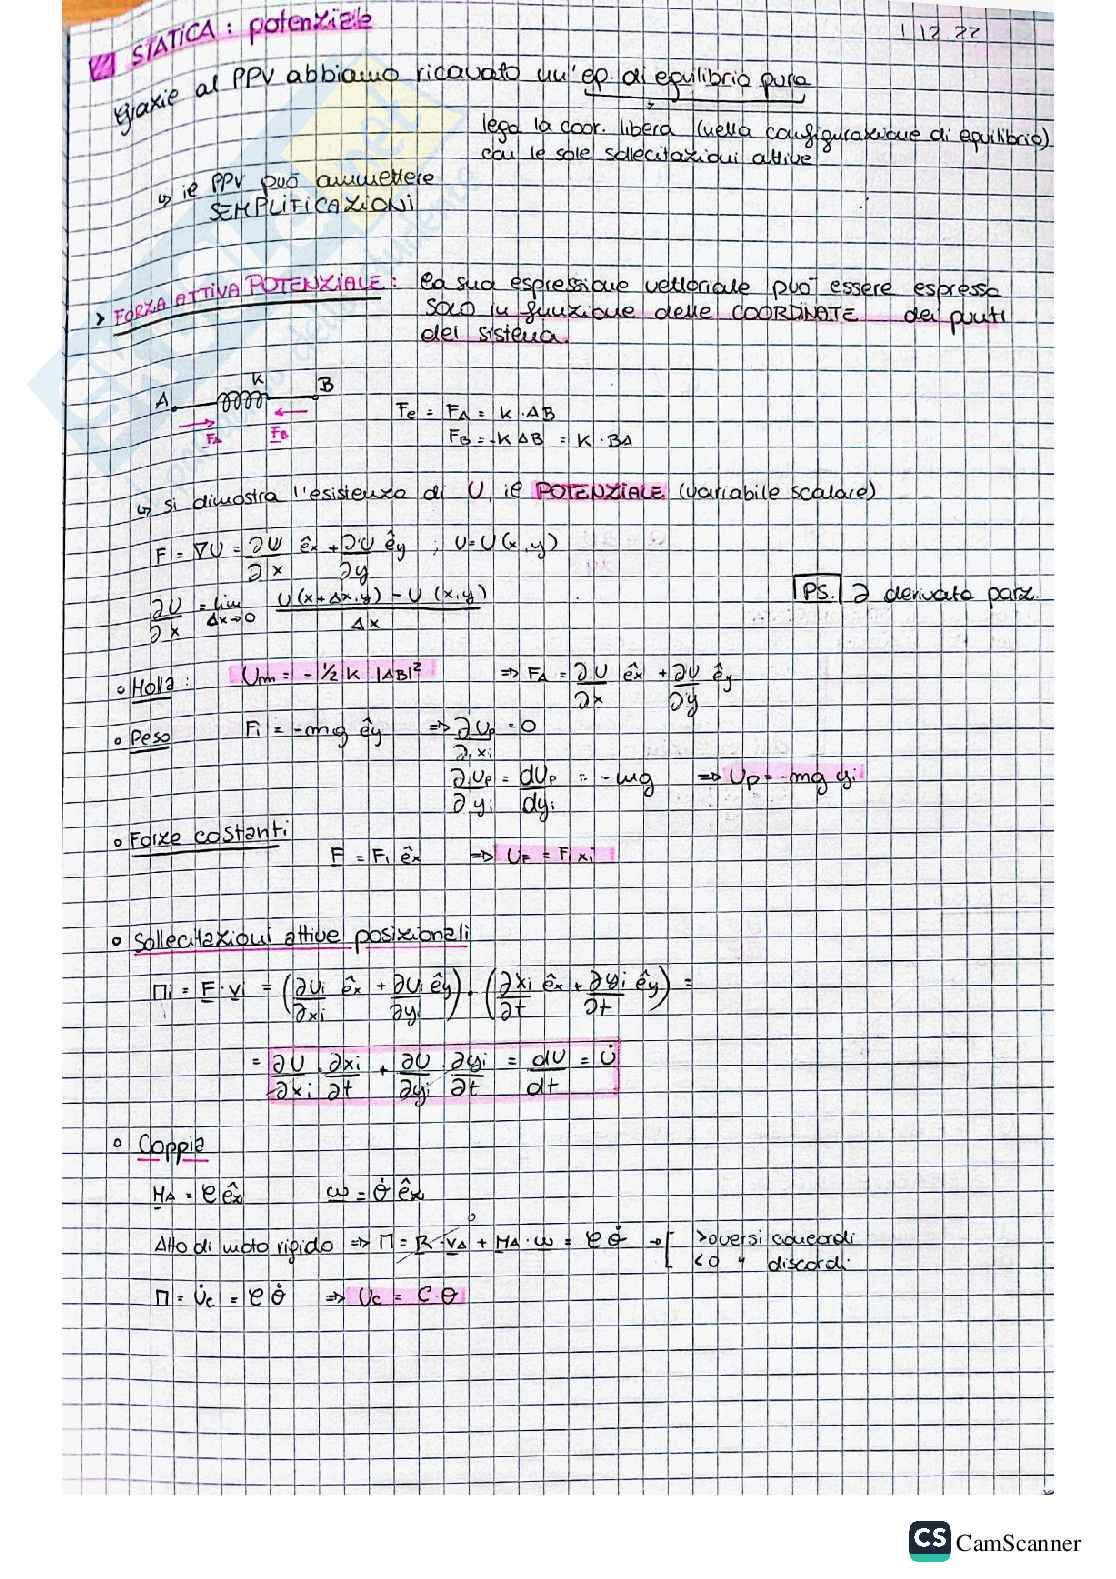 STATICA: potenziale
1 12 22
grazie al PPV abbiamo ricavato un'eq di equilibrio pura
lega la coor. libera (nella configurazione di equilibrio)
con le sole sollecitazioni attive
↳ il PPV può ammettere
SEMPLIFICAZIONI
> FORZA ATTIVA POTENZIALE: la sua espressione vettoriale può essere espressa
SOLO in funzione delle COORDINATE dei punti
del sistema.
A K B
FA FB
Fe = FA = K · AB
FB = -K AB = K · BA
↳ si dimostra l'esistenza di U, il POTENZIALE (variabile scalare)
F = ∇U = ∂U/∂x êx + ∂U/∂y êy ; U = U(x,y)
∂U/∂x = lim Δx→0 U(x+Δx,y) - U(x,y) / Δx
PS. ∂ derivata parz.
• Molla: Um = -1/2 K |AB|² ⇒ FA = ∂U/∂x êx + ∂U/∂y êy
• Peso Fi = -mg êy ⇒ ∂Up/∂xi = 0
∂Up/∂yi = dUp/dyi = -mg ⇒ Up = -mg yi
• Forze costanti
F = Fi êx ⇒ UF = F xi
• Sollecitazioni attive posizionali
Πi = F · vi = (∂Ui/∂xi êx + ∂Ui/∂yi êy) · (∂xi/∂t êx + ∂yi/∂t êy) =
= ∂U/∂xi · ∂xi/∂t + ∂U/∂yi · ∂yi/∂t = dU/dt = U̇
• Coppia
MA = C êz ω = θ̇ êz
Atto di moto rigido ⇒ Π = R · vA + MA · ω = C θ̇ → [ >0 versi concordi
<0 " discordi
Π = U̇c = C θ̇ ⇒ Uc = C · θ
CS CamScanner